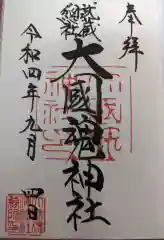 奉拝
武蔵
総社
大國魂神社
令和四年九月
四日